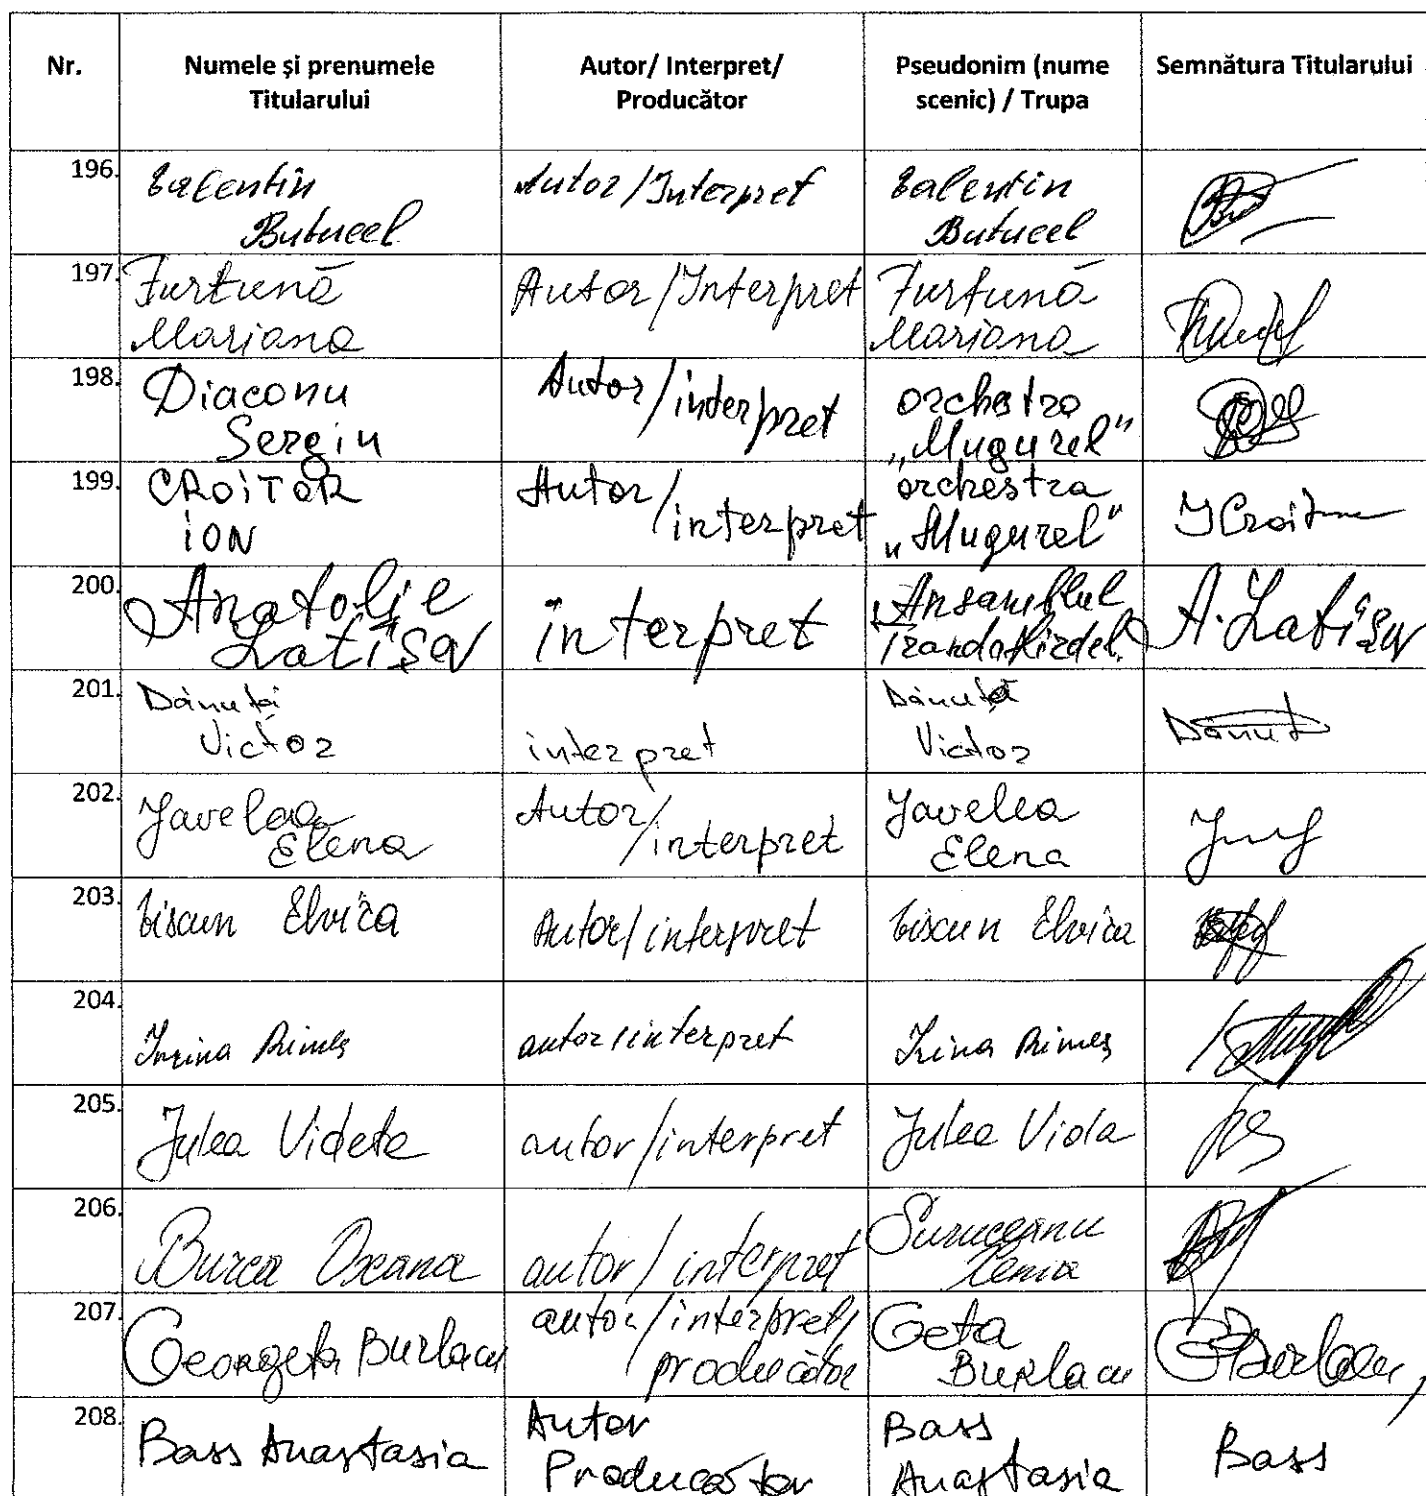 Nr.
Numele și prenumele
Titularului
Autor/ Interpret/
Producător
Pseudonim (nume
scenic) / Trupa
Semnătura Titularului
196.
Valentin
Butucel
Autor/Interpret
Valentin
Butucel
197.
Furtună
Mariana
Autor/Interpret
Furtună
Mariana
198.
Diaconu
Sergiu
Autor/interpret
orchestra
„Mugurel"
199.
CROITOR
ION
Autor/
interpret
orchestra
„Mugurel"
ICroitor
200.
Anatolie
Latîșev
interpret
Ansamblul
A. Latîșev
201.
Dănuță
Victor
interpret
Dănuță
Victor
Dănuț
202.
Javelea
Elena
Autor/
interpret
Javelea
Elena
203.
Elvira
Autor/interpret
Elvira
204.
Irina Rimes
autor/interpret
Irina Rimes
205.
Julea Videta
autor/interpret
Julea Viola
206.
Burca Oxana
autor/interpret
Suruceanu
Xenia
207.
Georgeta Burlacu
autor/interpret/
producător
Geta
Burlacu
GBurlacu
208.
Bass Anastasia
Autor
Producător
Bass
Anastasia
Bass